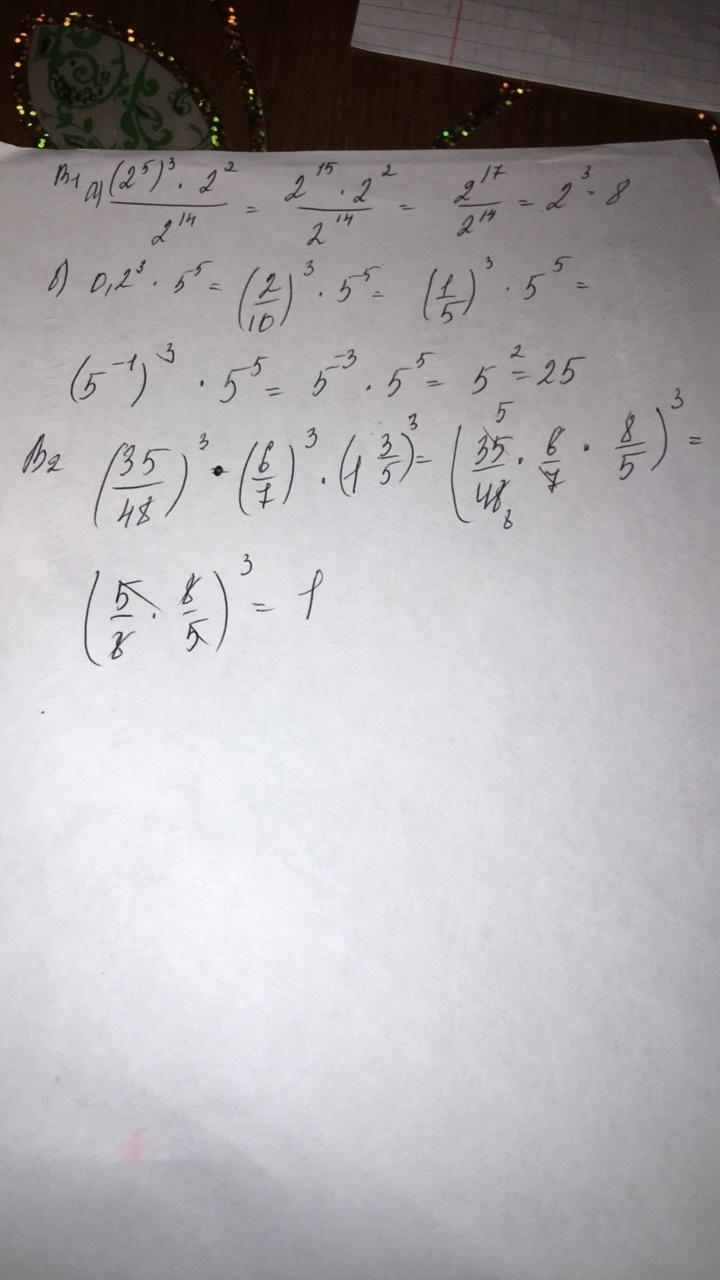 В1 а) (2⁵)³ · 2² / 2¹⁴ = 2¹⁵ · 2² / 2¹⁴ = 2¹⁷ / 2¹⁴ = 2³ = 8
б) 0,2³ · 5⁵ = (2/10)³ · 5⁵ = (1/5)³ · 5⁵ =
(5⁻¹)³ · 5⁵ = 5⁻³ · 5⁵ = 5² = 25
В2 (35/48)³ · (6/7)³ · (1 3/5)³ = (35/48 · 6/7 · 8/5)³ =
(5/8 · 8/5)³ = 1